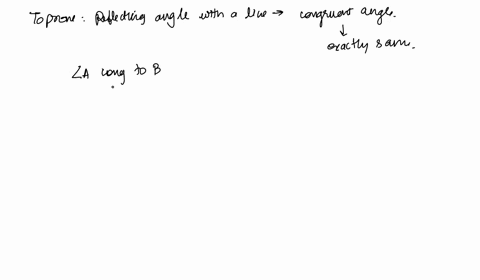 To prove: Reflecting angle with a line → congruent angle.
↓
exactly same.
∠A cong to B